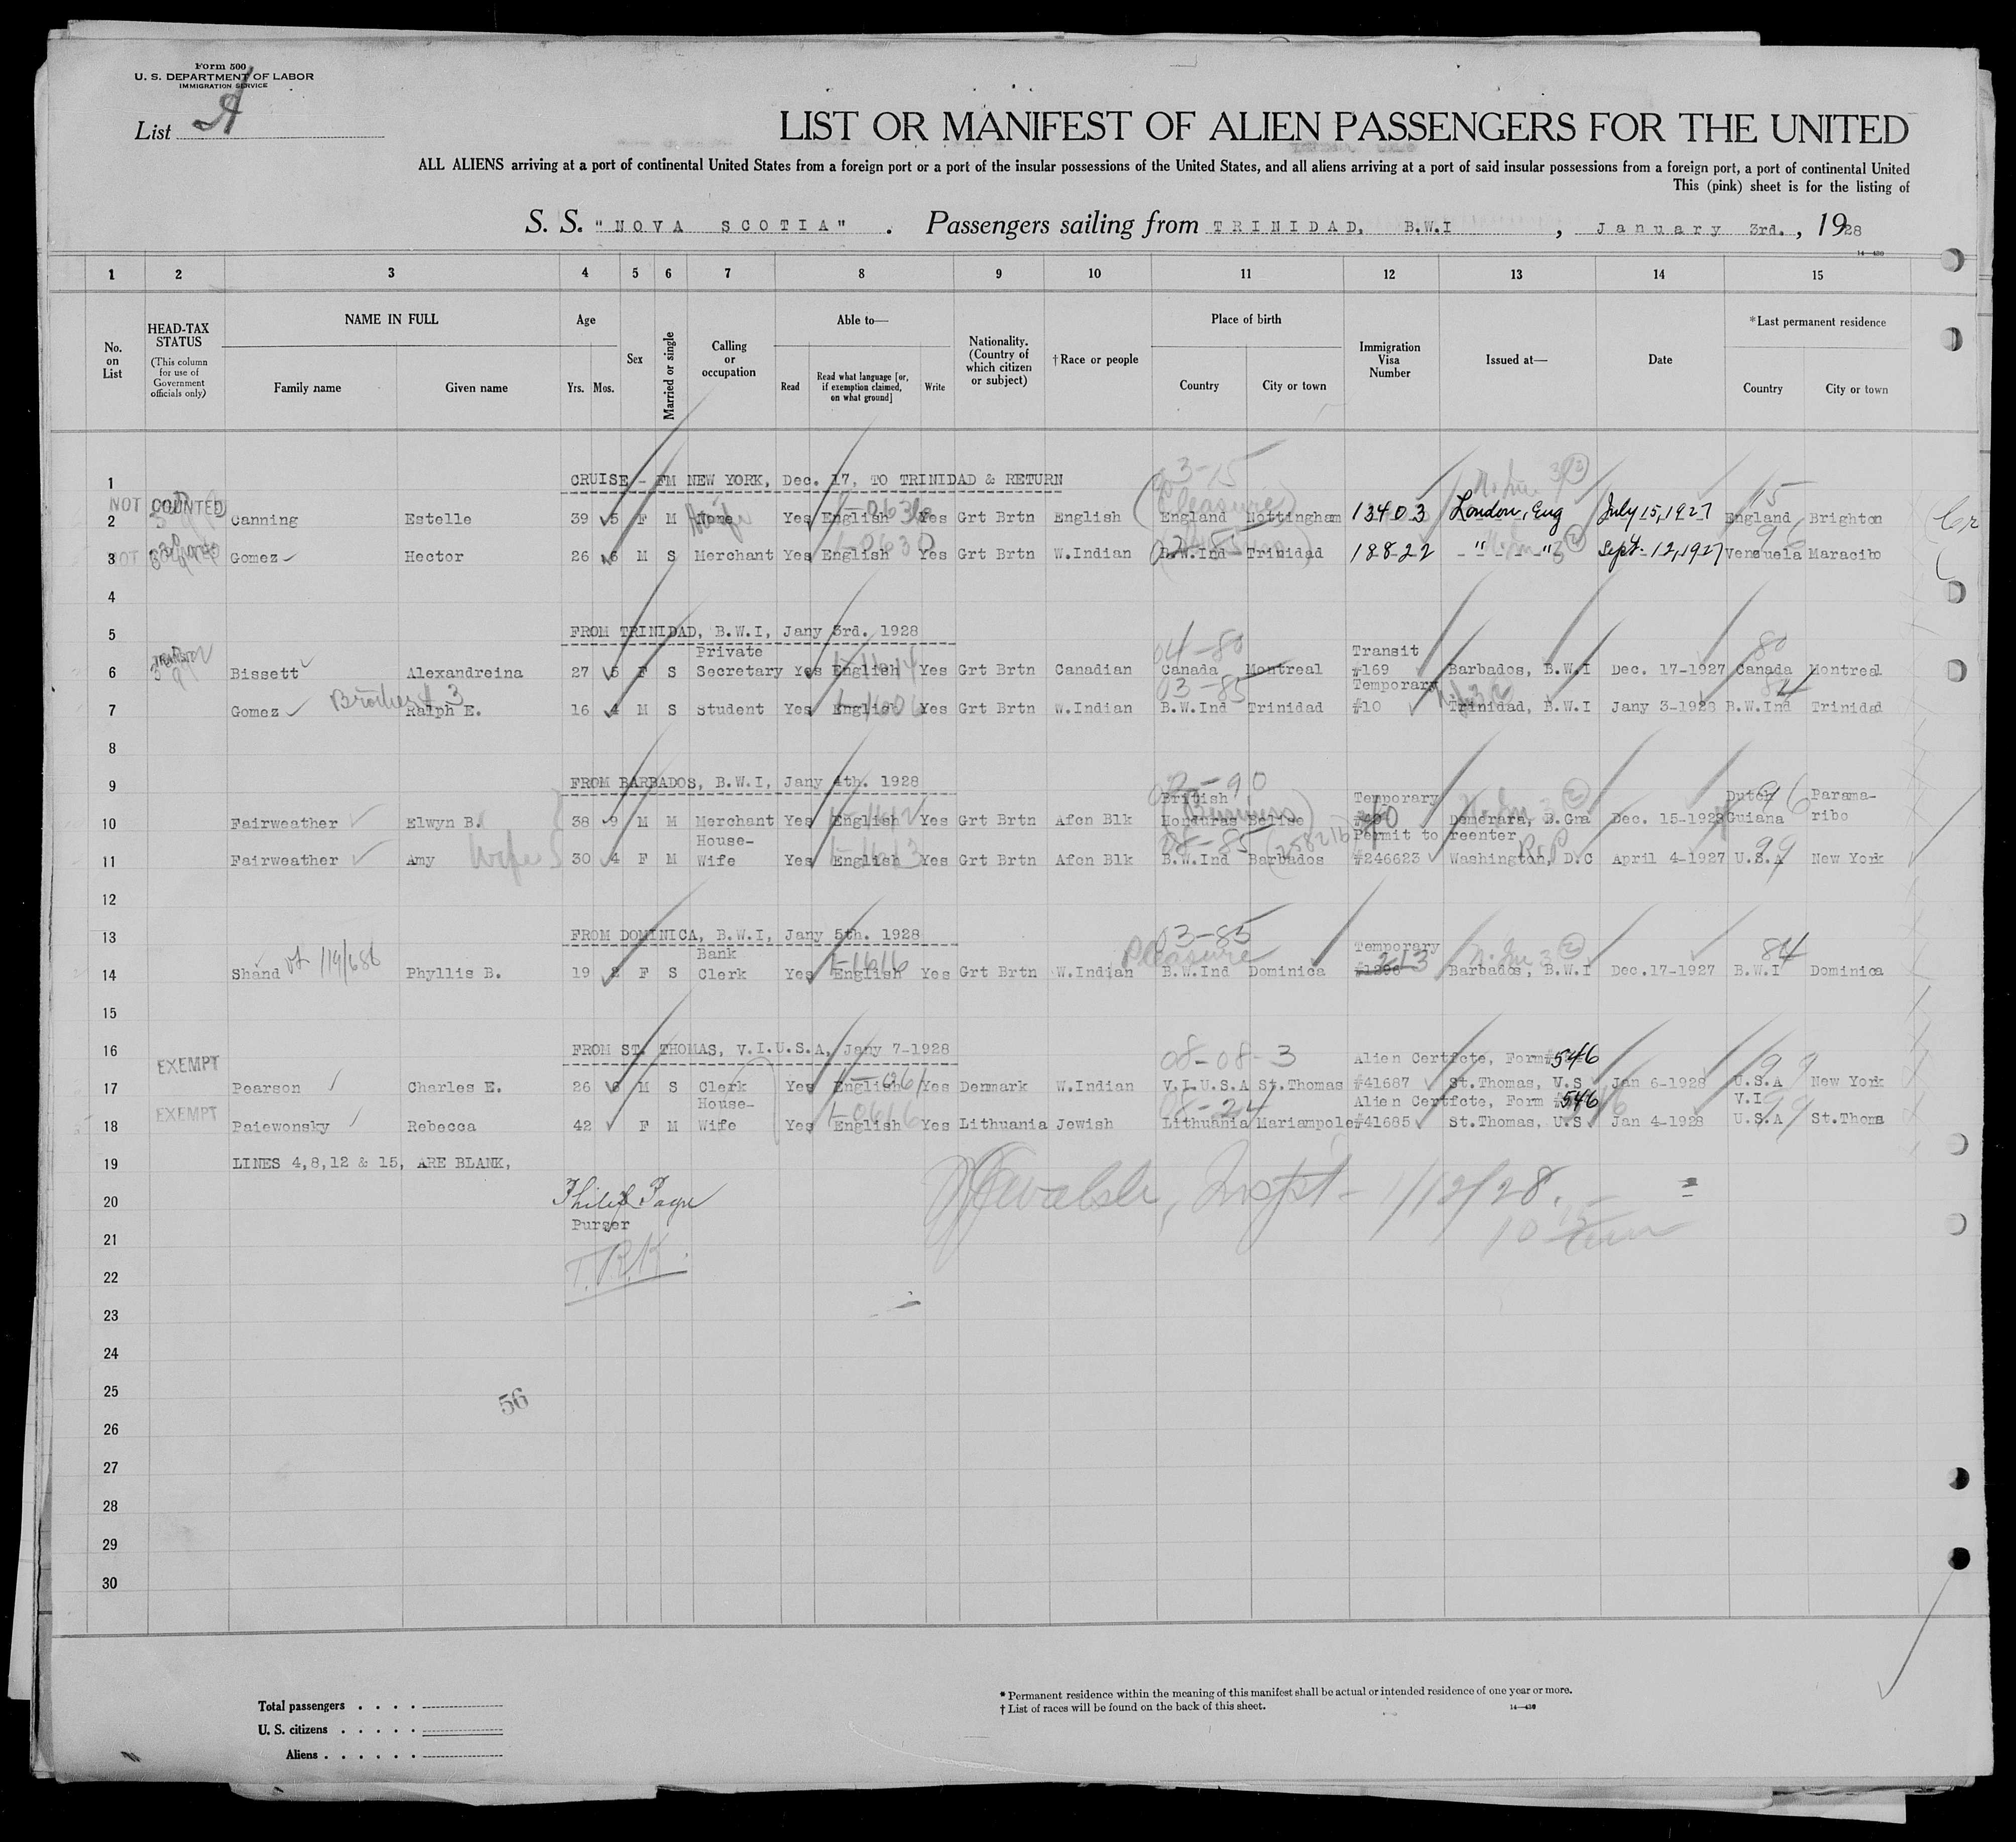 Form 500
U. S. DEPARTMENT OF LABOR
IMMIGRATION SERVICE
List A
LIST OR MANIFEST OF ALIEN PASSENGERS FOR THE UNITED
ALL ALIENS arriving at a port of continental United States from a foreign port or a port of the insular possessions of the United States, and all aliens arriving at a port of said insular possessions from a foreign port, a port of continental United
This (pink) sheet is for the listing of
S. S. "NOVA SCOTIA" . Passengers sailing from TRINIDAD, B.W.I , January 3rd. , 1928
14—430
1 2 3 4 5 6 7 8 9 10 11 12 13 14 15
No. on List
HEAD-TAX STATUS (This column for use of Government officials only)
NAME IN FULL
Family name Given name
Age
Yrs. Mos.
Sex
Married or single
Calling or occupation
Able to—
Read
Read what language [or, if exemption claimed, on what ground]
Write
Nationality. (Country of which citizen or subject)
†Race or people
Place of birth
Country City or town
Immigration Visa Number
Issued at—
Date
*Last permanent residence
Country City or town
1 CRUISE - FM NEW YORK, Dec. 17, TO TRINIDAD & RETURN 03-15
NOT COUNTED (Pleasure)
2 Canning Estelle 39 5 F M None Wife Yes English Yes Grt Brtn English England Nottingham 13403 London, Eng July 15, 1927 England Brighton 15
3 Gomez Hector 26 6 M S Merchant Yes English Yes Grt Brtn W.Indian B.W.Ind Trinidad 18822 - " - - - " Sept. 12, 1927 Venezuela Maracibo 96
4
5 FROM TRINIDAD, B.W.I, Jany 3rd. 1928
04-80 80
6 Bissett Alexandreina 27 5 F S Private Secretary Yes English Yes Grt Brtn Canadian Canada Montreal Transit #169 Barbados, B.W.I Dec. 17-1927 Canada Montreal
Brother # 3 03-85 84
7 Gomez Ralph E. 16 4 M S Student Yes English Yes Grt Brtn W.Indian B.W.Ind Trinidad Temporary #10 Trinidad, B.W.I Jany 3-1928 B.W.Ind Trinidad
8
9 FROM BARBADOS, B.W.I, Jany 4th. 1928
(Business) 96
10 Fairweather Elwyn B. 38 9 M M Merchant Yes English Yes Grt Brtn Afcn Blk British Honduras Belise Temporary Demerara, B.Gna Dec. 15-1928 Dutch Guiana Paramaribo
Wife 08-85 99
11 Fairweather Amy 30 4 F M House-Wife Yes English Yes Grt Brtn Afcn Blk B.W.Ind Barbados Permit to reenter #246623 Washington, D.C April 4-1927 U.S.A New York
12
13 FROM DOMINICA, B.W.I, Jany 5th. 1928
03-85
Pleasure 84
14 Shand Phyllis B. 19 2 F S Bank Clerk Yes English Yes Grt Brtn W.Indian B.W.Ind Dominica Temporary #1296 213 Barbados, B.W.I Dec.17-1927 B.W.I Dominica
15
16 FROM ST. THOMAS, V.I.U.S.A, Jany 7-1928
EXEMPT 08-08-3 99
17 Pearson Charles E. 26 6 M S Clerk Yes English Yes Denmark W.Indian V.I.U.S.A St.Thomas Alien Certfcte, Form# 546 #41687 St.Thomas, U.S Jan 6-1928 U.S.A New York
EXEMPT 08-24 99
18 Paiewonsky Rebecca 42 F M House-Wife Yes English Yes Lithuania Jewish Lithuania Mariampole Alien Certfcte, Form # 546 #41685 St.Thomas, U.S Jan 4-1928 V.I U.S.A St.Thoms
19 LINES 4,8,12 & 15, ARE BLANK,
20 Philip Page Walsh, Inspt - 1/12/28.
Purser
21
T.R.K.
22
23
24
25
56
26
27
28
29
30
Total passengers . . . .
U. S. citizens . . . . .
Aliens . . . . . .
* Permanent residence within the meaning of this manifest shall be actual or intended residence of one year or more.
† List of races will be found on the back of this sheet.
14—430